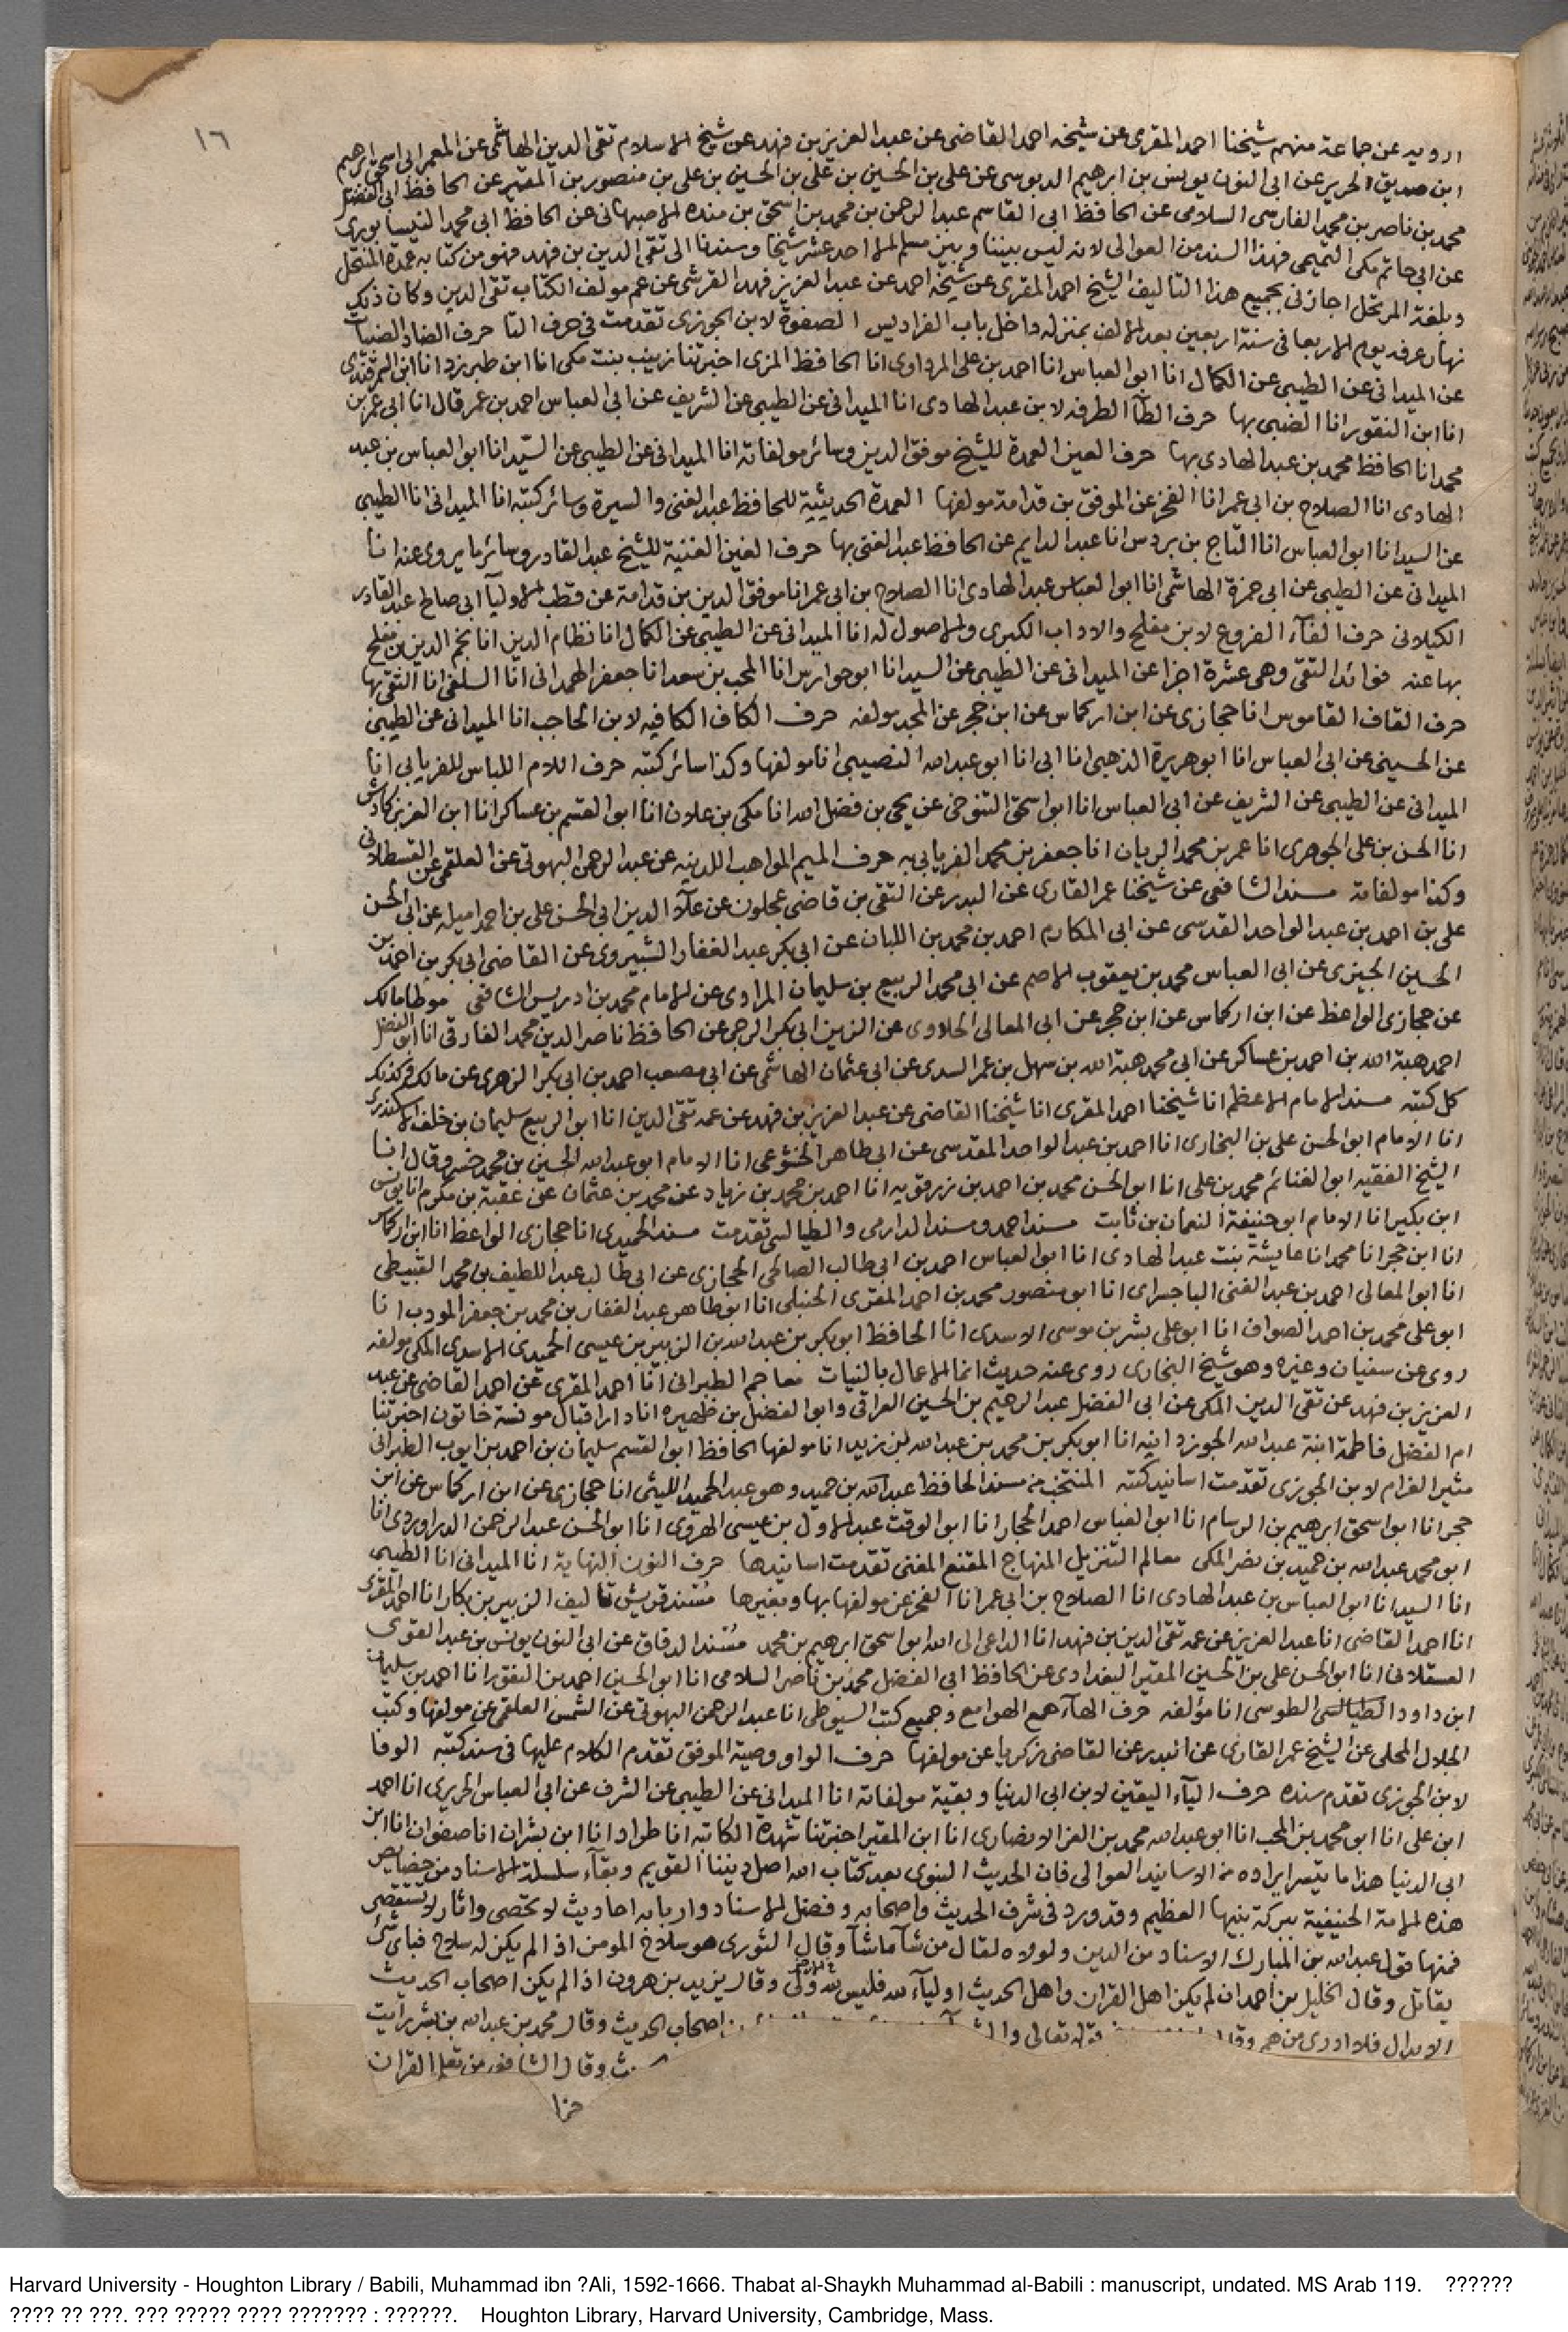 ١٦
ارويه عن جماعة منهم شيخنا احمد المقرى عن شيخه احمد القاضى عن عبد العزيز بن فهد عن شيخ الاسلام تقى الدين الهاشمى عن المعمر ابى اسحق ابرهيم
ابن صديق الحريرى عن ابى النون يونس بن ابرهيم الدبوسى عن على بن الحسين بن على بن الحسين بن على بن منصور بن المقير عن الحافظ ابى الفضل
محمد بن ناصر بن محمد الفارسى السلامى عن الحافظ ابى القاسم عبد الرحمن بن محمد بن اسحق بن منده الاصبهانى عن الحافظ ابى محمد النيسابورى
عن ابى حاتم مكى التميمى فهذا السند من العوالى لانه ليس بيننا وبين مسلم الا احد عشر شيخا وسندنا الى تقى الدين بن فهد فهو من كتابه عمدة المنتحل
وبلغة المرتحل اجازنى بجميع هذا التاليف الشيخ احمد المقرى عن شيخه احمد عن عبد العزيز فهد القرشى عن عم مولف الكتاب تقى الدين وكان ذلك
نهار عرفه يوم الاربعا فى سنة اربعين بعد الالف بمنزله داخل باب الفراديس الصفوة لابن الجوزى تقدمت فى حرف التا حرف الضاد الضبيات
عن الميدانى عن الطيبى عن الكمال انا ابو العباس انا احمد بن على المرداوى انا الحافظ المزى اخبرتنا زينب بنت مكى انا ابن طبرزد انا ابن السمرقندى
انا ابن النقور انا الضبى بها حرف الطآ الطرفه لابن عبد الهادى انا الميدانى عن الطيبى عن الشريف عن ابى العباس احمد بن عمر قال انا ابى عمر بن
محمد انا الحافظ محمد بن عبد الهادى بها حرف العين العمدة للشيخ موفق الدين وسائر مولفاته انا الميدانى عن الطيبى عن السيد انا ابو العباس بن عبد
الهادى انا الصلاح بن ابى عمر انا الفخر عن الموفق بن قدامة مولفها العمدة الحديثية للحافظ عبد الغنى والسيرة وسائر كتبه انا الميدانى انا الطيبى
عن السيد انا ابو العباس انا التاج بن بردس انا عبد الدايم عن الحافظ عبد الغنى بها حرف الغين الغنية للشيخ عبد القادر وسائر ما يروى عنه انا
الميدانى عن الطيبى عن ابى حمزة الهاشمى انا ابو العباس عبد الهادى انا الصلاح بن ابى عمر انا موفق الدين بن قدامة عن قطب الاوليآ ابى صالح عبد القادر
الكيلانى حرف الفآء الفروع لابن مفلح والاداب الكبرى والاصول له انا الميدانى عن الطيبى عن الكمال انا نظام الدين انا نجم الدين بن مفلح
بها عنه فوائد الثقفى وهى عشرة اجزا عن الميدانى عن الطيبى عن السيد انا ابو حوارس انا المحب بن سعد انا جعفر الهمدانى انا السلفى انا الثقفى بها
حرف القاف القاموس انا حجازى عن ابن اركماس عن ابن حجر عن المجد مولفه حرف الكاف الكافيه لابن الحاجب انا الميدانى عن الطيبى
عن الحسينى عن ابى العباس انا ابو هريرة الذهبى انا ابى انا ابو عبد الله النصيبى انا مولفها وكذا سائر كتبه حرف اللام اللباس للفريابى انا
الميدانى عن الطيبى عن الشريف عن ابى العباس انا ابو اسحق التنوخى عن يحيى بن فضل الله انا مكى بن علان انا ابو القسم بن عساكر انا ابن العز بن كادش
انا الحسن بن على الجوهرى انا عمر بن محمد الزيات انا جعفر بن محمد الفريابى به حرف الميم المواهب اللدنيه عن عبد الرحمن البهوتى عن العلقمى عن القسطلانى
وكذا مولفاته مسند الشافعى عن شيخنا عمر القارى عن البدر عن التقى بن قاضى عجلون عن علآء الدين ابى الحسن على بن احمد اميله عن ابى الحسن
على بن احمد بن عبد الواحد القدسى عن ابى المكارم احمد بن محمد بن اللبان عن ابى بكر عبد الغفار الشيروى عن القاضى ابى بكر بن احمد بن
الحسين الجيزى عن ابى العباس محمد بن يعقوب الاصم عن ابى محمد الربيع بن سليمان المرادى عن الامام محمد بن ادريس الشافعى موطا مالك
عن حجازى الواعظ عن ابن اركماس عن ابن حجر عن ابى المعالى الحلاوى عن الزين ابى بكر الرحبى عن الحافظ ناصر الدين محمد الفارقى انا ابو الفضل
احمد هبة الله بن احمد بن عساكر عن ابى محمد هبة الله بن سهل بن عمر السدى عن ابى عثمان الهاشمى عن ابى مصعب احمد بن ابى بكر الزهرى عن مالك وكذلك
كل كتبه مسند الامام الاعظم انا شيخنا احمد المقرى انا شيخنا القاضى عن عبد العزيز بن فهد عن عمه تقى الدين انا ابو الربيع سليمان بن خلف الاسكندرى
انا الامام ابو الحسن على بن البخارى انا احمد بن عبد الواحد المقدسى عن ابى طاهر الخشوعى انا الامام ابو عبد الله الحسين بن محمد خسرو قال انا
الشيخ الفقيه ابو الغنائم محمد بن على انا ابو الحسن محمد بن احمد بن زرقويه انا احمد بن محمد بن زياد عن محمد بن عثمان عن عقبة بن مكرم انا يونس
ابن بكير انا الامام ابو حنيفة النعمان بن ثابت مسند احمد ومسند الدارمى والطيالسى تقدمت مسند الحميدى انا حجازى الواعظ انا ابن اركماس
انا ابن حجر انا محمد انا عايشة بنت عبد الهادى انا ابو العباس احمد بن ابى طالب الصالحى الحجازى عن ابى طالب عبد اللطيف بن محمد القبيطى
انا ابو المعالى احمد بن عبد الغنى الباجسراى انا ابو منصور محمد بن احمد المقرى الحنبلى انا ابو طاهر عبد الغفار بن محمد بن جعفر المودب انا
ابو على محمد بن احمد الصواف انا ابو على بشر بن موسى الاسدى انا الحافظ ابو بكر بن عبد الله بن الزبير بن عيسى الحميدى الاسدى المكى مولفه
روى عن سفيان وغيره وهو شيخ البخارى روى عنه حديث انما الاعمال بالنيات معاجم الطبرانى انا احمد المقرى عن احمد القاضى عن عبد
العزيز بن فهد عن تقى الدين المكى عن ابى الفضل عبد الرحيم بن الحسين العراقى وابو الفضل بن ظهيره انا دار اقبال مونسة خاتون اخبرتنا
ام الفضل فاطمة ابنة عبد الله الجوزدانيه انا ابو بكر بن محمد بن عبد الله بن زيد انا مولفها الحافظ ابو القسم سليمان بن احمد بن ايوب الطبرانى
مثير الغرام لابن الجوزى تقدمت اسانيد كتبه المنتخب من مسند الحافظ عبد الله بن حميد وهو عبد الحميد الليثى انا حجازى عن ابن اركماس عن ابن
حجر انا ابو اسحق ابرهيم بن الرسام انا ابو العباس احمد الحجار انا ابو الوقت عبد الاول بن عيسى الهروى انا ابو الحسن عبد الرحمن الدراوردى انا
ابو محمد عبد الله بن حميد بن نضر المكى معالم التنزيل المنهاج المقنع المغنى تقدمت اسانيدها حرف النون النهاية انا الميدانى انا الطيبى
انا السيد انا ابو العباس بن عبد الهادى انا الصلاح بن ابى عمر انا الفخر عن مولفها بها وبغيرها مسند قريش تاليف الزبير بن بكار انا احمد المقرى
انا احمد القاضى انا عبد العزيز عن عمه تقى الدين بن فهد انا الداعى الى الله ابو اسحق ابرهيم بن محمد مسند الدقاق عن ابى النون يونس بن عبد القوى
العسقلانى انا ابو الحسن على بن الحسين المقير البغدادى عن الحافظ ابى الفضل محمد بن ناصر السلامى انا ابو الحسين احمد بن النقور انا احمد بن سليمان
ابن داود الطيالسى الطوسى انا مؤلفه حرف الهآء همع الهوامع وجميع كتب السيوطى انا عبد الرحمن البهوتى عن الشمس العلقمى عن مولفها وكتب
الجلال المحلى عن الشيخ عمر القارى عن البدر عن القاضى زكريا عن مولفها حرف الواو وصية الموفق تقدم الكلام عليها فى سند كتبه الوفا
لابن الجوزى تقدم سنده حرف اليآء اليقين لابن ابى الدنيا وبقية مولفاته انا الميدانى عن الطيبى عن الشرف عن ابى العباس الحريرى انا احمد
ابن على انا ابو محمد بن المحب انا ابو عبد الله محمد بن العز الانصارى انا ابن المقير اخبرتنا شهدة الكاتبه انا طراد انا ابن بشران انا صفوان انا ابن
ابى الدنيا هذا ما تيسر ايراده من الاسانيد العوالى فان الحديث النبوى بعد كتاب الله اصل ديننا القويم وبقآء سلسلة الاسناد من خصايص
هذه الامة الحنيفية ببركة نبيها العظيم وقد ورد فى شرف الحديث واصحابه وفضل الاسناد واربابه احاديث لا تحصى واثار لا تستقصى
فمنها قول عبد الله بن المبارك الاسناد من الدين ولولاه لقال من شآ ما شآ وقال الثورى هو سلاح المومن اذ الم يكن له سلاح فباى شئ
يقاتل وقال الخليل بن احمد ان لم يكن اهل القران واهل الحديث اوليآء لله فليس لله ولى وقال يزيد بن هرون اذ الم يكن اصحاب الحديث
الابدال فلا ادرى من هم وقا قوله تعالى اصحاب الحديث وقال محمد بن عبد الله بن بشر رايت
وقال الشافعى من تعلم القران